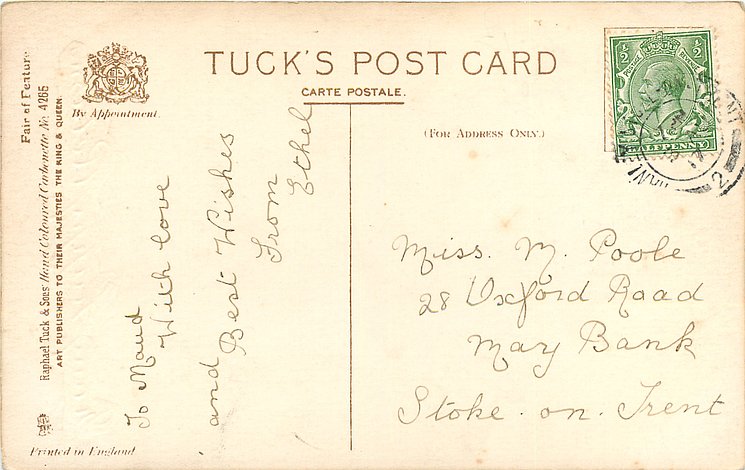 TUCK'S POST CARD
CARTE POSTALE.
(FOR ADDRESS ONLY.)
By Appointment.
Fair of Feature
Raphael Tuck & Sons' Hand Coloured Carbonette No. 4265
ART PUBLISHERS TO THEIR MAJESTIES THE KING & QUEEN.
Printed in England
To Maud
With love
and
Best Wishes
From
Ethel
½ ½
POSTAGE
HALFPENNY
TRENT
2
Miss. M. Poole
28 Oxford Road
May Bank
Stoke. on. Trent